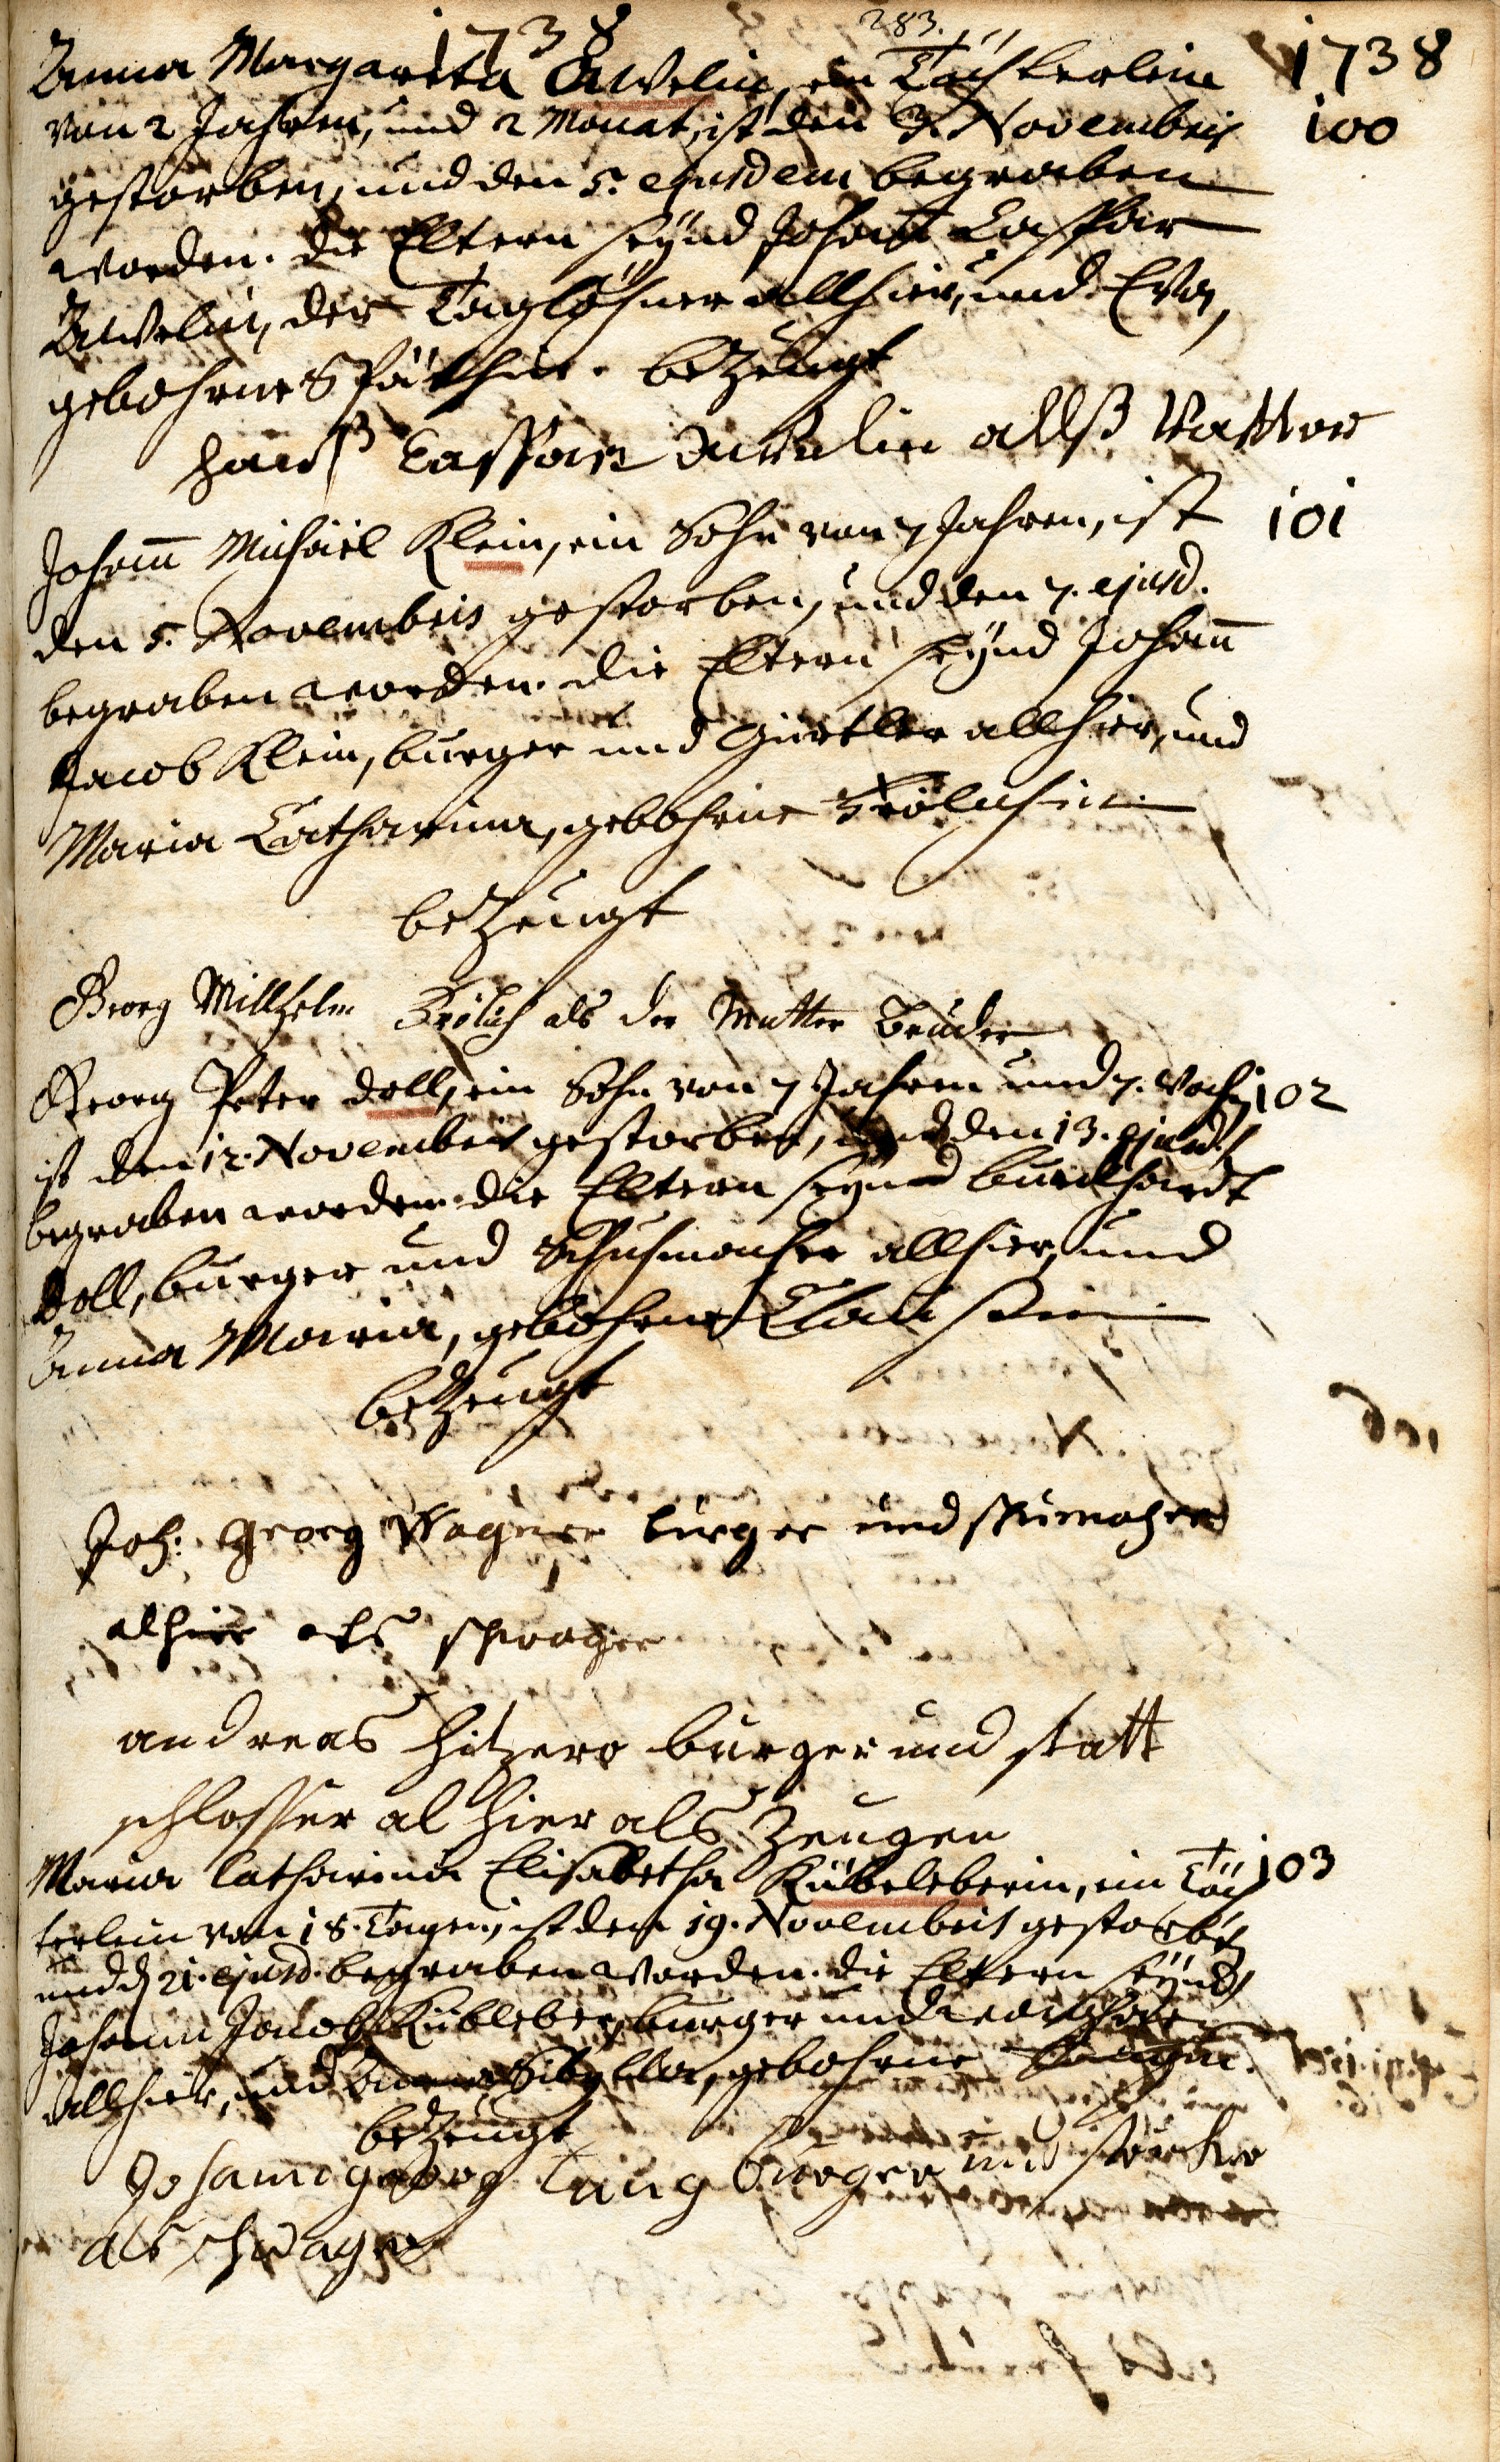 1738 283. 1738
Anna Margareta Awelin, ein Töchterlein
von 2 Jahren, und 2 Monat, ist den 3. Novembris 100
gestorben, und den 5. ejusdem begraben
worden. die Eltern seÿnd Johañ Casspar
Awelin, der Taglöhner allhier, und Eva,
gebohrne Späthin. bezeugt
Hanß Casspar Awelin allß Vatter
Johann Michäel Klein, ein Sohn von 7 Jahren, ist 101
den 5. Novembris gestorben, und den 7. ejusd.
begraben worden. die Eltern seÿnd Johañ
Jacob Klein, burger und Gürtler allhier, und
Maria Catharina, gebohrne Frölichin
bezeugt
Georg Willhelm Frölich als der Mutter bruder
Georg Peter Doll, ein Sohn von 7 Jahren und 7. Woch 102
ist den 12. Novembris gestorben, und den 13. ejusd.
begraben worden. die Eltern seÿnd burckhardt
Doll, burger und Schuhmacher allhier, und
Anna Maria, gebohrne
bezeugt
Joh: Georg Wagner burger und schumacher
alhier als schwager
andreas Hitzero burger und statt
schlosser al hier als Zeugen
Maria Catharina Elisabetha Kübeleberin, ein Töch 103
terlein von 18. Tagen, ist den 19. Novembris gestorbe
und d 21. ejusd. begraben worden. die Eltern seÿnd
Johann Jacob Kübleber, burger und
allhier, und Anna Sibylla, gebohrne Langin.
bezeugt
Johann georg lang burger und
als schwager